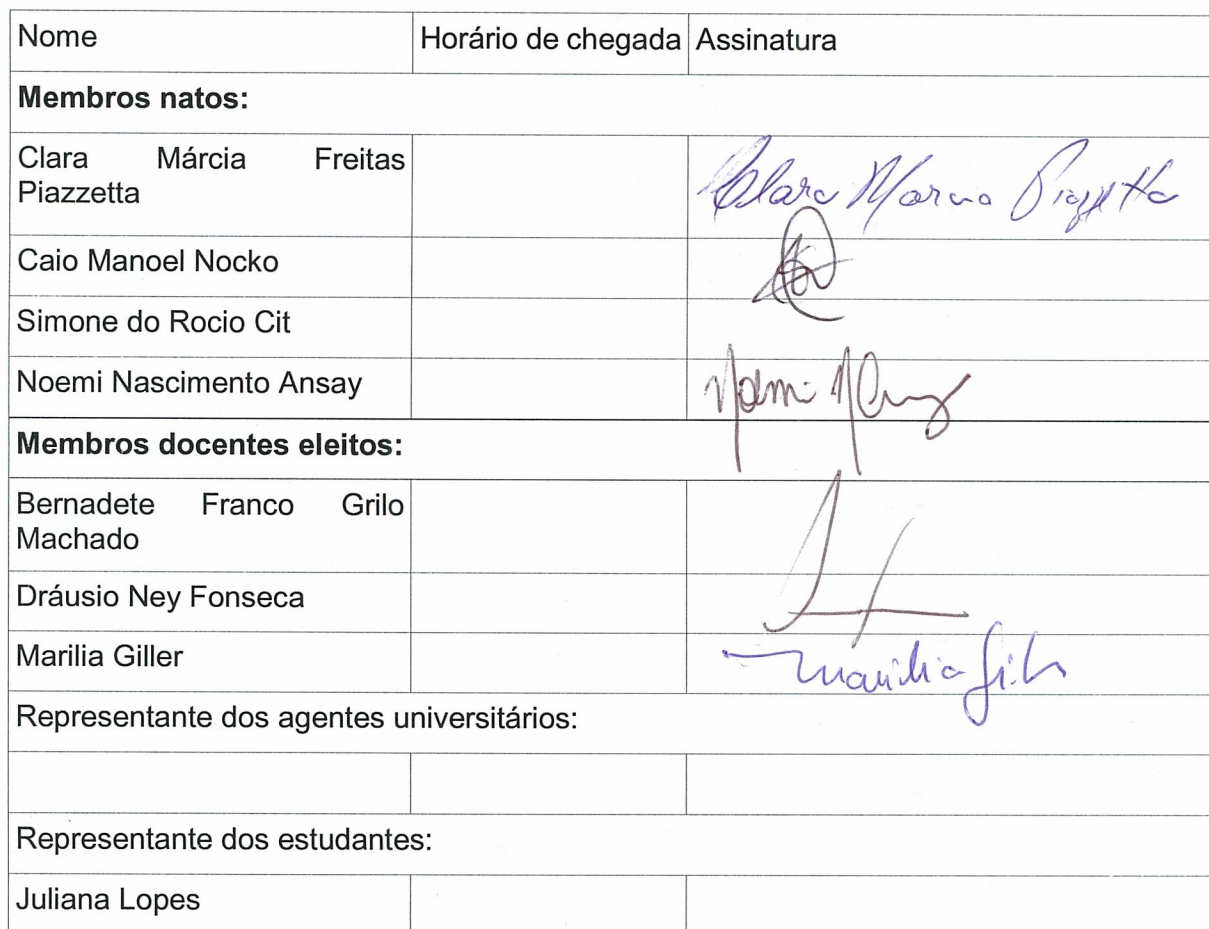 Nome Horário de chegada Assinatura
Membros natos:
Clara Márcia Freitas
Piazzetta
Clara Marcia Piazzetta
Caio Manoel Nocko
Simone do Rocio Cit
Noemi Nascimento Ansay
Noemi N
Membros docentes eleitos:
Bernadete Franco Grilo
Machado
Dráusio Ney Fonseca
Marilia Giller
Marilia Giller
Representante dos agentes universitários:
Representante dos estudantes:
Juliana Lopes